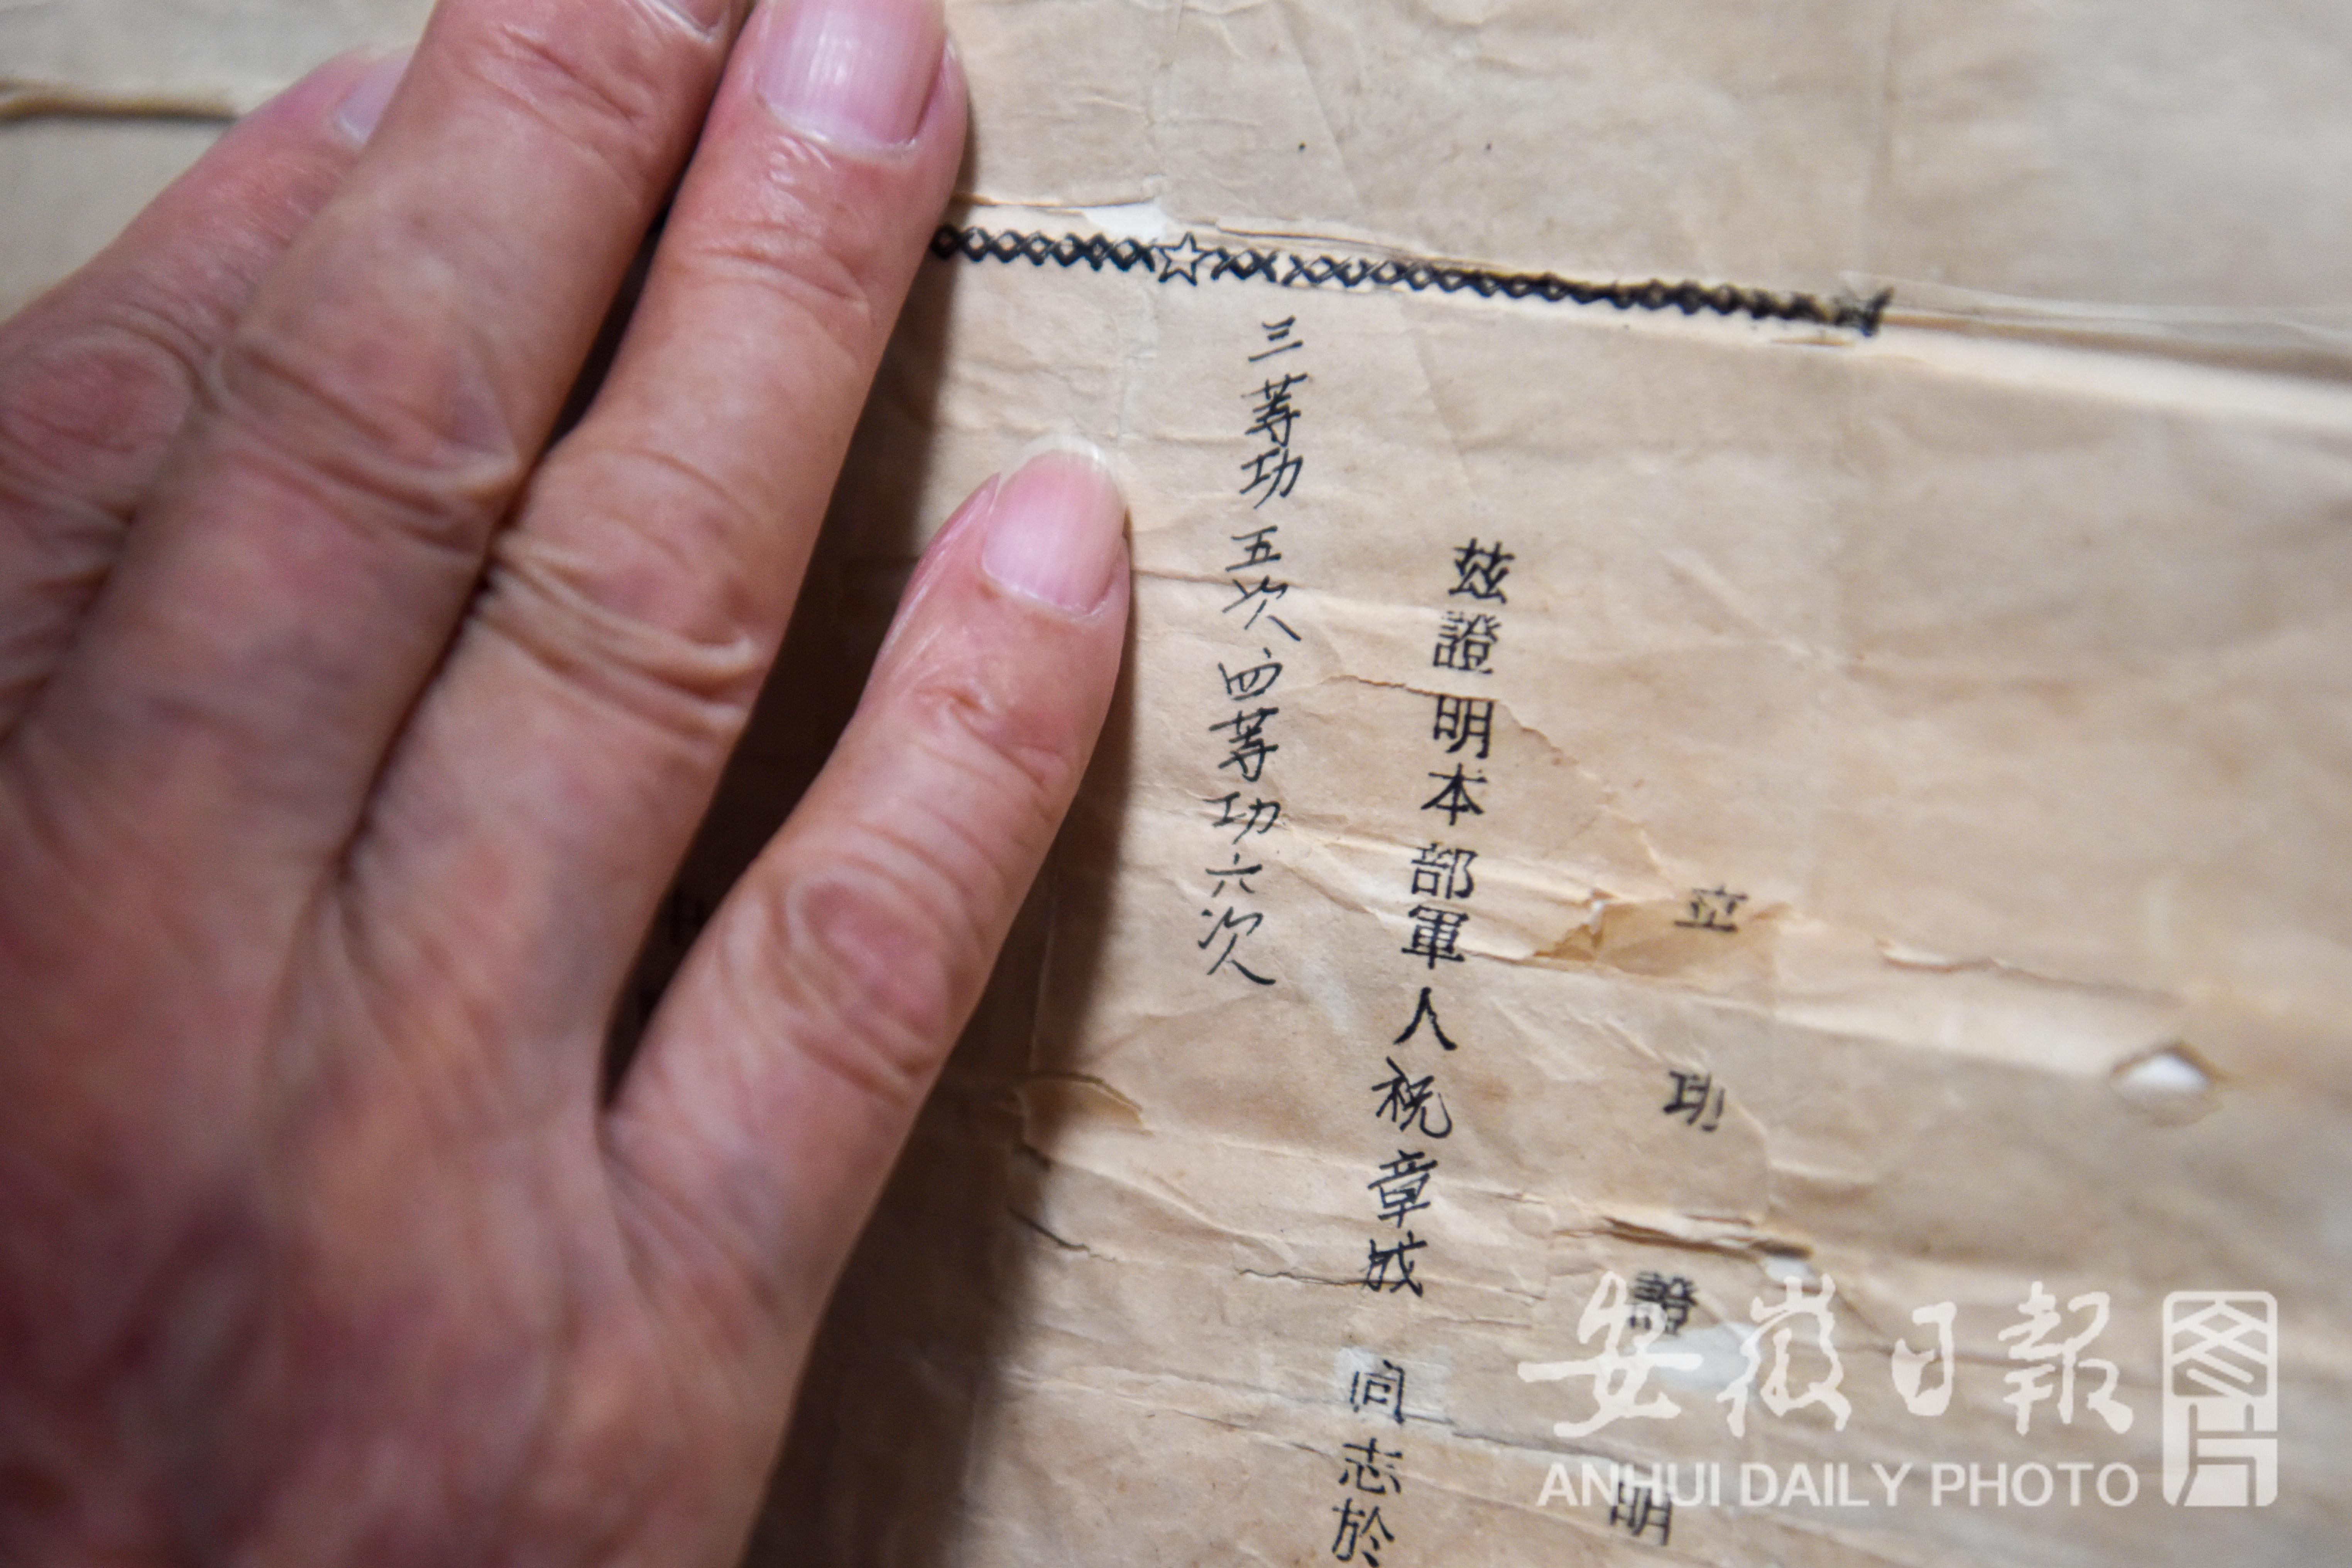 立功證明
茲證明本部軍人祝章成同志於
三等功五次四等功六次
安徽日報
图片
ANHUI DAILY PHOTO